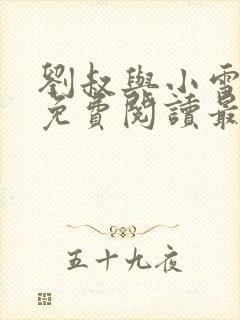 劉叔與小雪
免費閱讀最
五十九夜